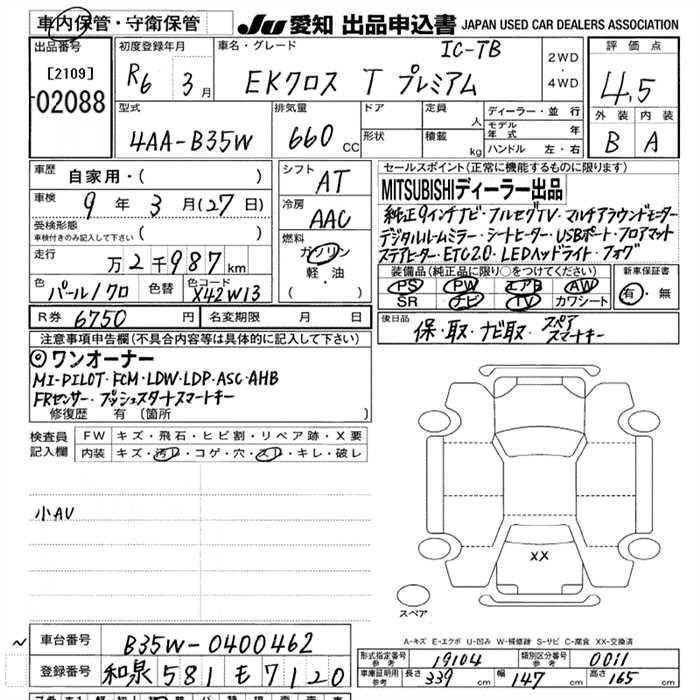 車内保管・守衛保管
JU 愛知 出品申込書 JAPAN USED CAR DEALERS ASSOCIATION
出品番号
[2109]
02088
初度登録年月
R6 3月
車名・グレード IC-TB
EKクロス T プレミアム
2WD
・
4WD
評価点
4.5
外装 内装
B A
型式
4AA-B35W
排気量
660 cc
ドア
形状
定員 人
積載 kg
ディーラー・並行
モデル年式 年
ハンドル 左・右
車歴 自家用・( )
車検 9年 3月(27日)
受検形態
車検付きのみ記入して下さい ( )
走行 万2千987km
色 パール/クロ 色替 色コード X42W13
シフト AT
冷房 AAC
燃料
ガソリン
軽・油
( )
R券 6750円 名変期限 月 日
セールスポイント(正常に機能するものに限ります)
MITSUBISHIディーラー出品
純正9インチナビ・フルセグTV・マルチアラウンドモニター
デジタルルームミラー・シートヒーター・USBポート・フロアマット
ステアヒーター・ETC2.0・LEDヘッドライト・フォグ
装備品(純正品に限り○をつけてください)
PS PW エアB AW
SR ナビ TV カワシート
新車保証書
有・無
後日品 保・取・ナビ取・スペア
スマートキー
注意事項申告欄(不具合内容等は具体的に記入して下さい)
◎ワンオーナー
MI-PILOT・FCM・LDW・LDP・ASC・AHB
FRセンサー・プッシュスタートスマートキー
修復歴 有 〔箇所 〕
検査員記入欄
FW キズ・飛石・ヒビ割・リペア跡・X要
内装 キズ・汚レ・コゲ・穴・スレ・キレ・破レ
小AU
XX
スペア
A-キズ E-エクボ U-凹み W-補修跡 S-サビ C-腐食 XX-交換済
~
車台番号 B35W-0400462
登録番号 和泉 581 モ 7120
形式指定番号 参考 19104 類別区分番号 参考 0011
車庫証明用 参考 長さ 339cm 幅 147cm 高さ 165cm